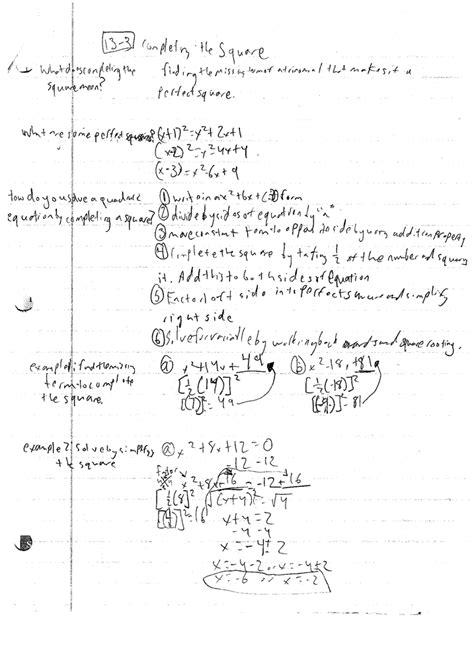 13-3 Completing the Square
What does completing the square mean?
finding the missing term of a trinomial that makes it a
perfect square.
What are some perfect squares?
(x+1)²=x²+2x+1
(x-2)²=x²-4x+4
(x-3)=x²-6x+9
How do you solve a quadratic
equation by completing a square?
① write in ax²+bx+c=0 form
② divide by sides of equation by "a"
③ move constant term to opposite side by using add. tran property
④ Complete the square by taking ½ of the number and square
it. Add this to both sides of equation
⑤ Factor left side into perfect square and simplify
right side
⑥ Solve for variable by working back and square rooting.
example 1: find the missing
term to complete
the square.
ⓐ x²+14x+49
[½(14)]²
[(7)]²=49
ⓑ x²-18x+81
[½(-18)]²
[(-9)]²=81
example 2: solve by
the square
ⓐ x²+8x+12=0
-12 -12
x²+8x+16=-12+16
[½(8)]²
[(4)]²=16
√(x+4)²=√4
x+4=2
-4 -4
x=-4±2
x=-4-2 or x=-4+2
x=-6 or x=-2